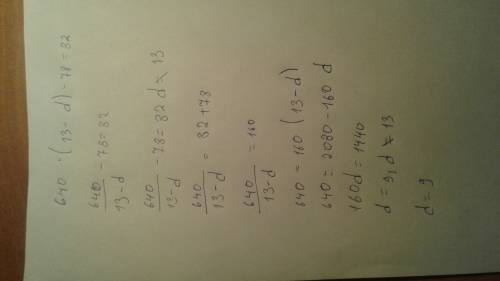 640 : (13 - d) - 78 = 82
640/13-d - 78 = 82
640/13-d - 78 = 82 d ≠ 13
640/13-d = 82 + 78
640/13-d = 160
640 = 160 (13 - d)
640 = 2080 - 160 · d
160d = 1440
d = 9, d ≠ 13
d = 9